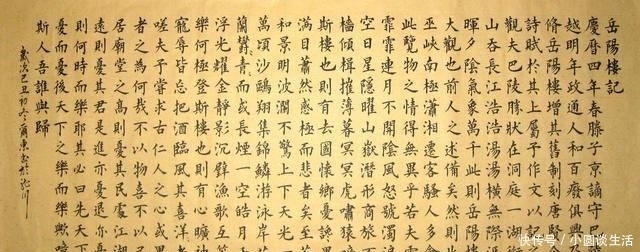 岳陽樓記
慶曆四年春滕子京謫守巴
越明年政通人和百廢俱興
脩岳陽樓增其舊制刻唐賢
詩賦於其上屬予作文以記
觀夫巴陵勝狀在洞庭一湖
山吞長江浩浩湯湯橫無際
暉夕陰氣象萬千此則岳陽
大觀也前人之述備矣然則
巫峽南極瀟湘遷客騷人多
此覽物之情得無異乎若夫
霏霏連月不開陰風怒號濁
空日星隱曜山嶽潛形商旅
檣傾楫摧薄暮冥冥虎嘯猿
斯樓也則有去國懷鄉憂讒
滿目蕭然感極而悲者矣至
和景明波瀾不驚上下天光
萬頃沙鷗翔集錦鱗游泳岸
蘭鬱青青而或長煙一空皓月
浮光耀金靜影沉璧漁歌互
樂何極登斯樓也則有心曠
寵辱皆忘把酒臨風其喜洋
嗟夫予嘗求古仁人之心或
者之為何哉不以物喜不以
居廟堂之高則憂其民處江湖
遠則憂其君是進亦憂退亦
則何時而樂耶其必曰先天
憂而憂後天下之樂而樂歟
斯人吾誰與歸
歲次己丑初冬
快传号 / 小圆谈生活